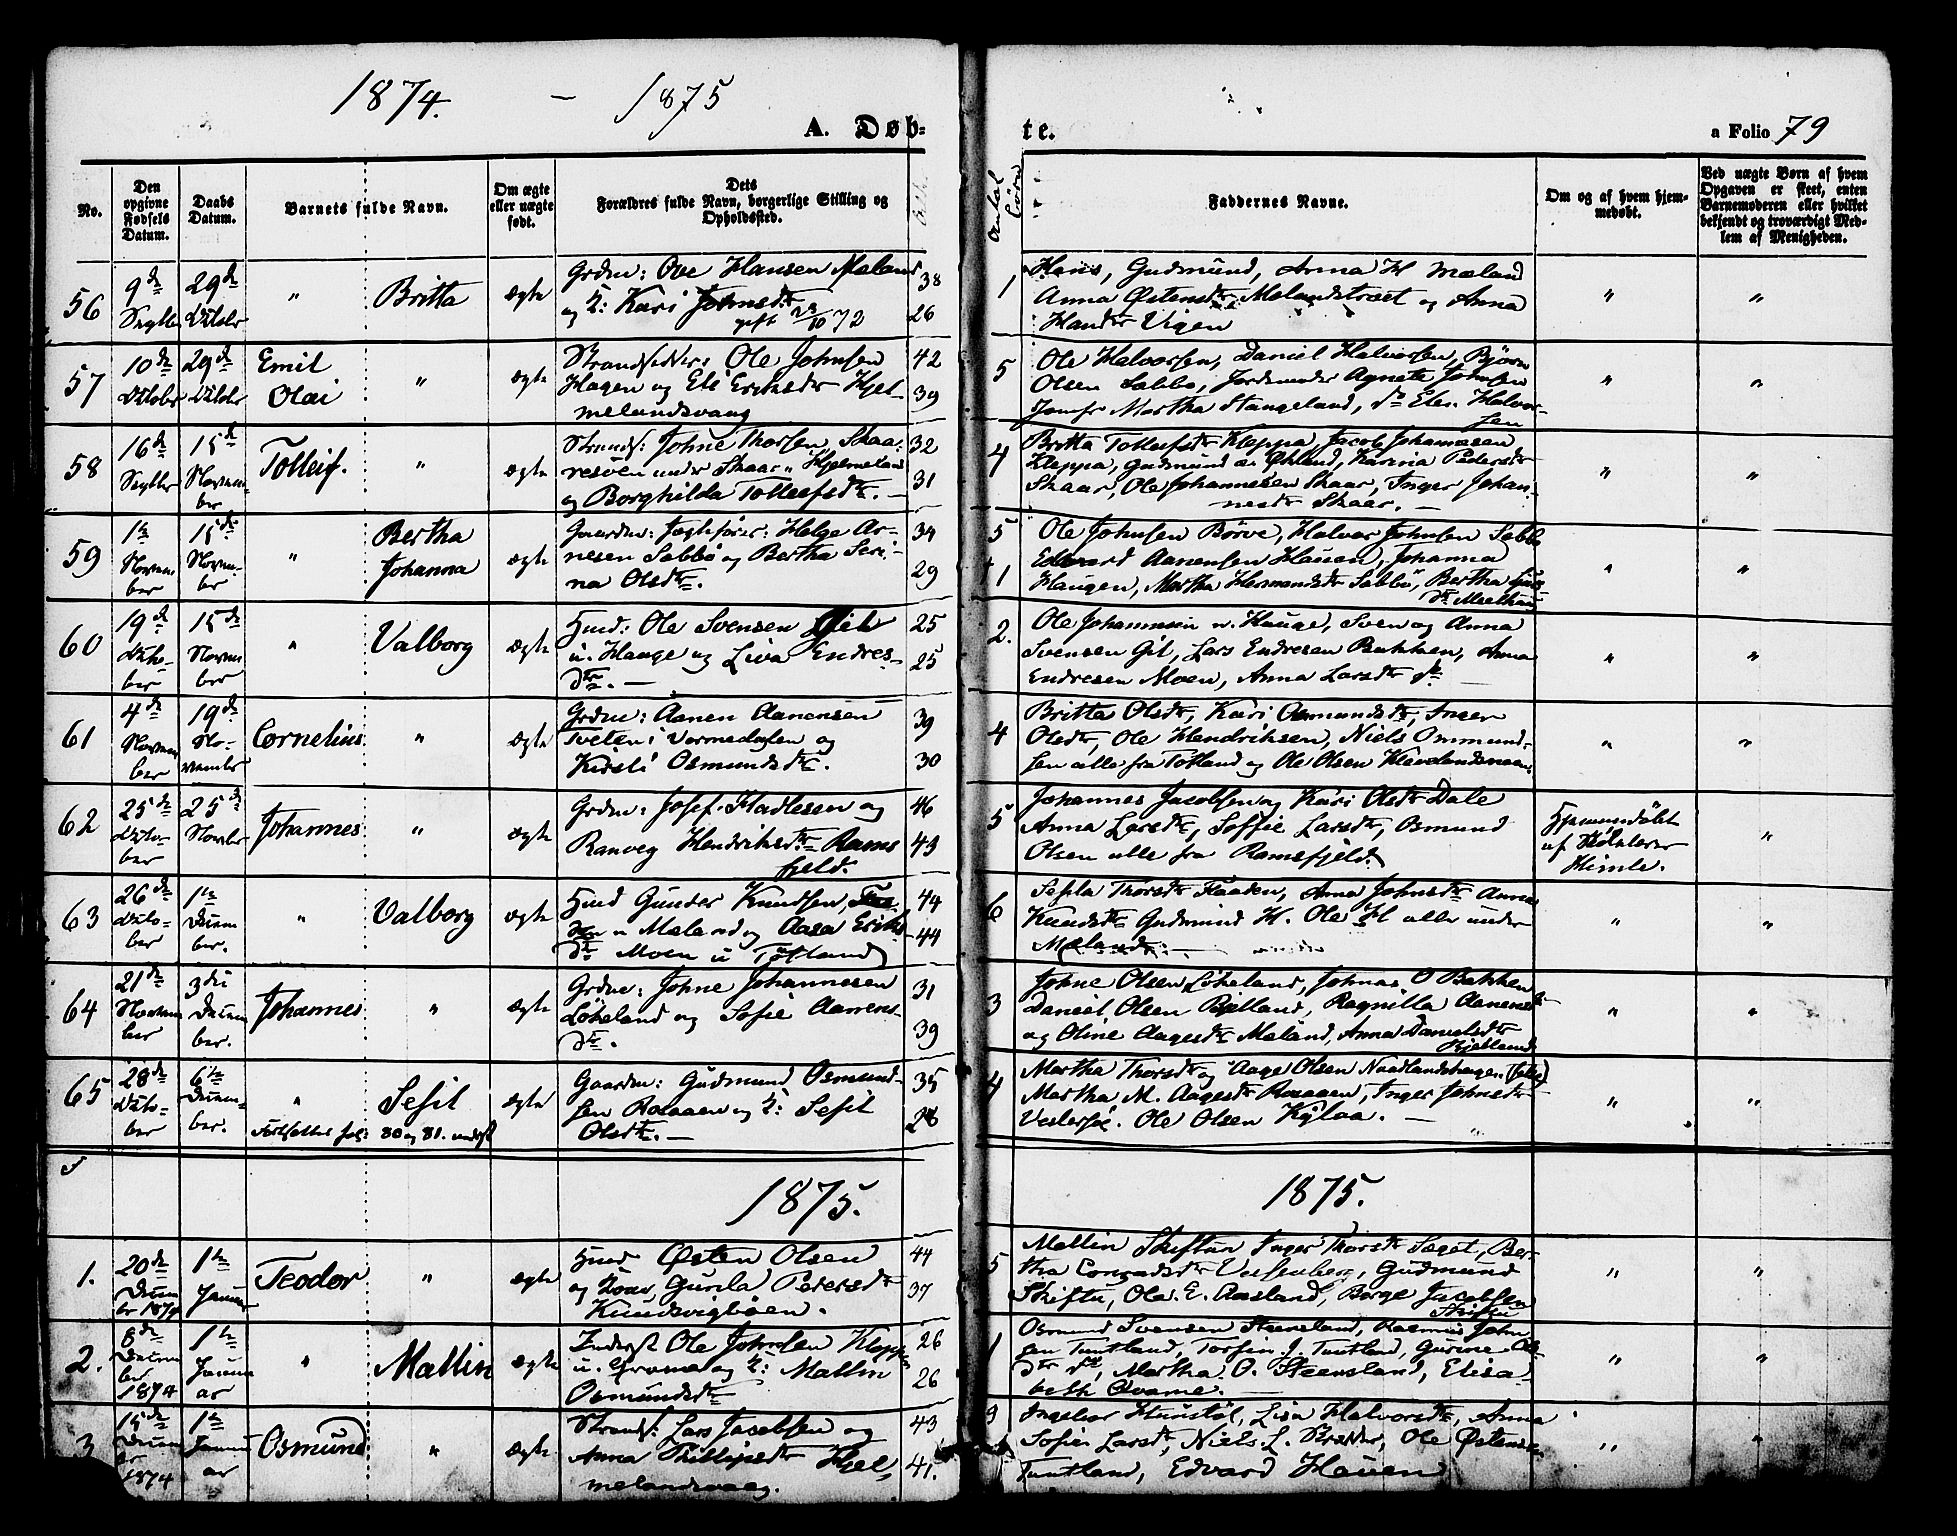 1874. – 1875
A. Døb-
te.
a Folio 79
No.
Den opgivne Fødsels Datum.
Daabs Datum.
Barnets fulde Navn.
Om ægte eller uægte født.
Dets Forældres fulde Navn, borgerlige Stilling og Opholdssted.
Antal Børn
Faddernes Navne.
Om og af hvem hjemmedøbt.
Ved uægte Børn af hvem Opgaven er skeet, enten Barnemoderen eller hvilket bekjendt og troværdigt Medlem af Menigheden.
56 9de Septber 29de Oktobr " Britta ægte
Grdm: Ove Hansen Mæland 38
og K: Kari Johnsdtr 26
gift 29/10 72
1 Hans, Gudmund, Anna H Mæland
Anna Østensdtr Mælandstræet og Anna
Hansdtr Vigen
" "
57 10de Oktobr 29de Oktobr Emil Olai " ægte
Strandsidder: Ole Johnsen 42
Hagen og Eli Eriksdtr Hjel- 39
melandsvaag
5 Ole Halvorsen, Daniel Halvorsen, Bjørn
Olsen Sabbø, Jordemoder Agnete Johnsen
Jomfr Martha Stangeland, do Elen Halvor-
sen
" "
58 16de Septber 15de November Tolleif. " ægte
Strands: Johne Thorsen Skaa- 32
resven under Skaar " Hjelmeland 31
og Borghilda Tolleefsdtr. –
4 Britta Tolleefsdtr Kleppa, Jacob Johannesen
Kleppa, Gudmund Øhland, Karina Pedersdtr
Skaar, Ole Johannesen Skaar, Inger Johan-
nesdtr Skaar. –
" "
59 1te November 15de November " Bertha Johanna ægte
Gaardm: Jægtefører: Helge Ar- 34
nesen Sabbø og Bertha Seri- 29
na Olsdtr.
5 Ole Johnsen Børve, Halvor Johnsen Sabbø
+1 Edvard Aanensen Hauen, Johanna
Haugen, Martha Hermandsdtr Sabbø, Bertha
" "
60 19de Oktober 15de November " Valborg ægte
Hmd: Ole Svensen Git 25
u. Hauge og Liva Endres- 25
dtr. –
2. Ole Johannesen u. Hauge, Sven og Anna
Svensen Git, Lars Endresen Bakken, Anna
Endresen Moen, Anna Larsdtr do –
" "
61 4de November 19de November Cornelius " ægte
Grdm: Aanen Aanensen 39
Tveten i Vormedalen og
Kirsti Osmundsdtr. 30
4 Britta Olsdtr, Kari Osmundsdtr, Inger
Olsdtr, Ole Hendriksen, Niels Ommund-
sen alle fra Tøtland og Ole Olsen
" "
62 25de Oktober 25de Novbr Johannes " ægte
Grdm: Josef Hadlesen og 46
Ranveg Hendriksdtr Rams 43
fjeld.
5 Johannes Jacobsen og Kari Olsdtr Dale
Anna Larsdtr, Soffie Larsdtr, Osmund
Olsen alle fra Ramsfjeld.
Hjemmedøbt af Skolelærer Himle.
"
63 26de Oktober 1te December. " Valborg ægte
Hmd Gunder Knudsen, 44
u Mæland og Aasa Eriks- 44
dtr Moen u Tøtland
6 Sessla Thorsdtr Flaaten, Anna Johnsdtr Anna
Knudsdtr Gudmund H. Ole H alle under
Mæland. –
" "
64 21de November 3die December. Johannes " ægte
Grdm: Johne Johannesen 31
Løkeland og Sofie Aanens- 39
dtr.
3 Johne Olsen Løkeland, Johnas O Bakken
Daniel Olsen Bjelland, Ragnilla Aanensdtr
og Oline Aagesdtr Mæland, Anna Danielsdtr
" "
65 28de Oktober 6te December. " Sesil ægte
Fortsættes fol: 80 og 81. nederst
Gaardm: Gudmund Osmund- 35
sen Raaaen og K: Sesil 28
Olsdtr. –
4 Martha Thorsdtr og Aage Olsen Naadlandshagen
Martha M. Aagesdtr Raaaen, Inger Johnsdtr
Vestersjø. Ole Olsen Kylaa. –
" "
1875.
1875.
1. 20de December 1874 1te Januar Teodor " ægte
Hmd Østen Olsen 44
og Kone, Gurila Pedersdtr 37
Knudsvigløen.
5 Mallin Skiftun Inger Thorsdtr Sæget, Ber-
tha Conradsdtr Valsenberg, Gudmund
Skiftu, Ole E. Aasland, Børge Jacobsen
Skiftu
" "
2. 8de December 1874 1te Januar " Mallin ægte
Inderst Ole Johnsen Klepp 26
u. Grama og K: Mallin 26
Osmundsdtr
1 Osmund Svensen Steensland, Rasmus John
sen Tuntland, Torfin J. Tuntland, Gurine Ols-
dtr do, Martha O. Steensland, Elisa-
beth Qvame. –
" "
3 15de December 1874 1te Januar Osmund " ægte
Strands: Lars Jacobsen og 43
Anna Phillipsdtr Hjel- 41.
melandsvaag.
9 Ingebor Hunstøl, Lisa Halvorsdtr, Anna
Sofie Larsdtr, Niels L. Skræder, Ole Østensen
Tuntland, Edvard Hauen
" "